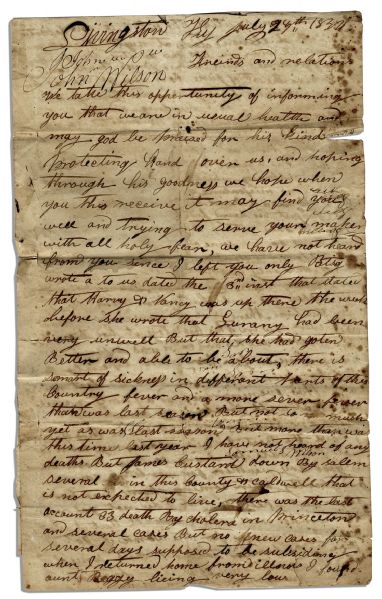 Livingston Ky July 29th 1832
John Wilson Freinds and relations
We take this oppertunity of informing
you that we are in usual health and
may god be praised for his Kind
Protecting Hand over us, and hoping
through his goodness we hope when
you this receive it may find you
well and trying to serve your maker
with all holy fear, we have not heard
from you since I left you only
wrote a to us date the 3rd inst that date
that Harvy & Nancy was up there the week
before she wrote that Surany had been
very unwell But that, she had goten
Better and able to be about, there is
sumart of sickness in different Parts of this
Country fever and a more sever fever
than was last season But not so much
yet as was last season but more than was
this time last year I have not heard of any
deaths But James Custard Down By salem
Wilson
several in this County & caldwell that
is not expected to live, there was the last
account 33 death By cholera in Princeton
and several cases But no new cases for
several days supposed to be subsiding
when I returned home from illinois I found
aunt Peggy lieing very low